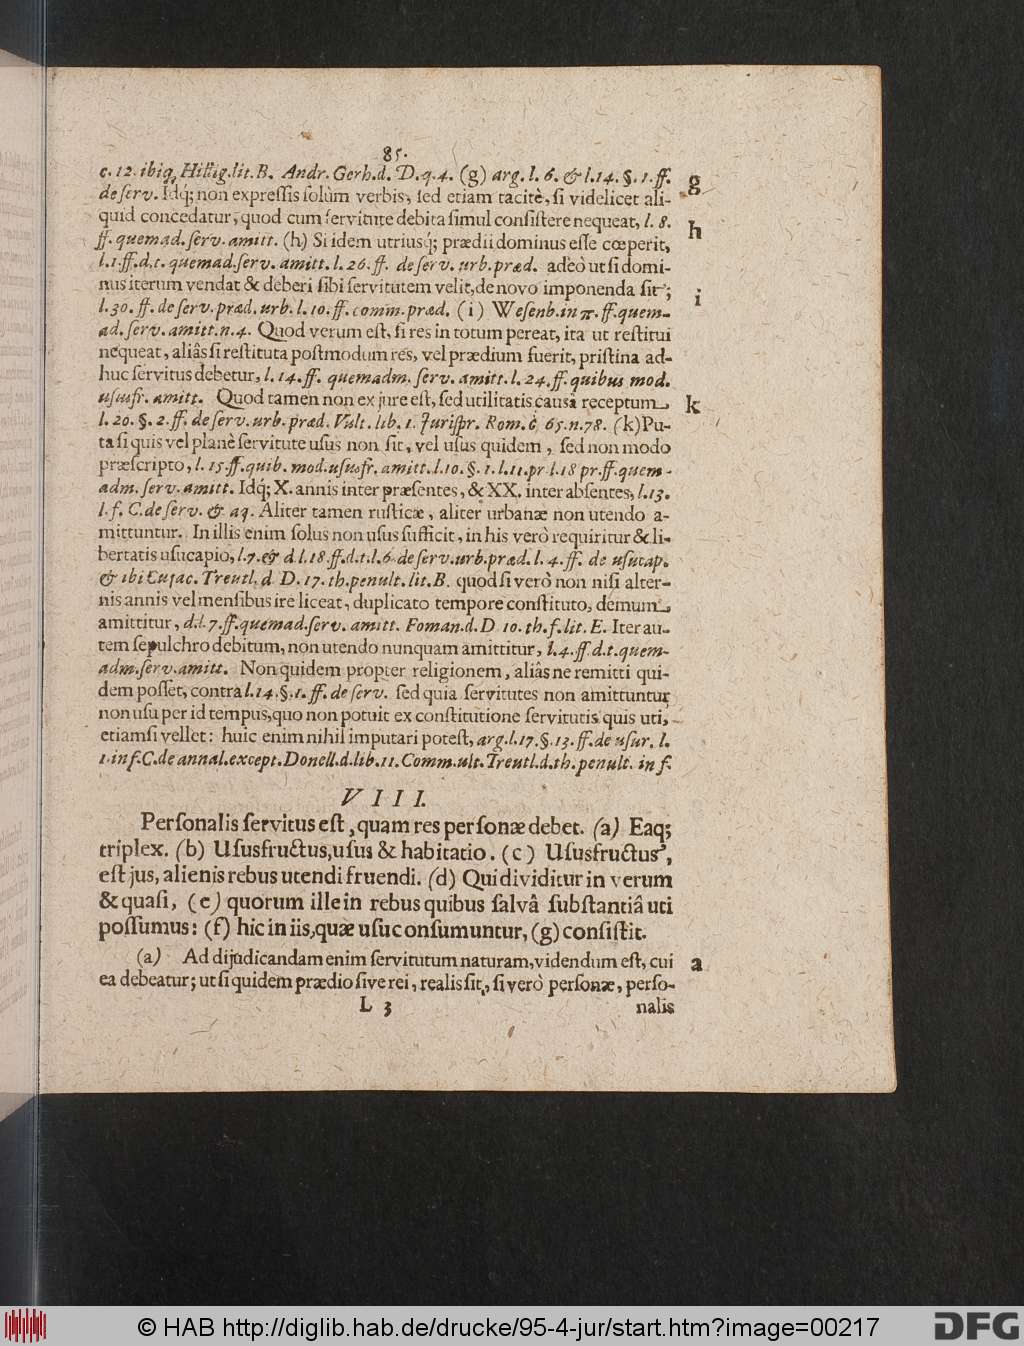 85.
c. 12. ibiq; Hillig. lit. B. Andr. Gerh. d. D. q. 4. (g) arg. l. 6. & l. 14. §. 1. ff. g
de serv. Idq́; non expressis solùm verbis, sed etiam tacitè, si videlicet ali-
quid concedatur, quod cum servitute debita simul consistere nequeat, l. 8. h
ff. quemad. serv. amitt. (h) Si idem utriusq́; prædii dominus esse cœperit,
l. 1. ff. d. t. quemad. serv. amitt. l. 26. ff. de serv. urb. præd. adeò ut si domi-
nus iterum vendat & deberi sibi servitutem velit, de novo imponenda sit; i
l. 30. ff. de serv. præd. urb. l. 10. ff. comm. præd. (i) Wesenb. in π. ff. quem-
ad. serv. amitt. n. 4. Quod verum est, si res in totum pereat, ita ut restitui
nequeat, aliâs si restituta postmodum res, vel prædium fuerit, pristina ad-
huc servitus debetur, l. 14. ff. quemadm. serv. amitt. l. 24. ff. quibus mod.
ususfr. amitt. Quod tamen non ex jure est, sed utilitatis causâ receptum k
l. 20. §. 2. ff. de serv. urb. præd. Vult. lib. 1. Jurispr. Rom. c. 65. n. 78. (k) Pu-
ta si quis vel planè servitute usus non sit, vel usus quidem, sed non modo
præscripto, l. 15. ff. quib. mod. ususfr. amitt. l. 10. §. 1. l. 11. pr. l. 18 pr. ff. quem-
adm. serv. amitt. Idq́; X. annis inter præsentes, & XX. inter absentes, l. 13.
l. f. C. de serv. & aq. Aliter tamen rusticæ, aliter urbanæ non utendo a-
mittuntur. In illis enim solus non usus sufficit, in his verò requiritur & li-
bertatis usucapio, l. 7. & d. l. 18. ff. d. t. l. 6. de serv. urb. præd. l. 4. ff. de usucap.
& ibi Cujac. Treutl. d. D. 17. th. penult. lit. B. quod si verò non nisi alter-
nis annis vel mensibus ire liceat, duplicato tempore constituto, demum
amittitur, d. l. 7. ff. quemad. serv. amitt. Foman. d. D. 10. th. f. lit. E. Iter au-
tem sepulchro debitum, non utendo nunquam amittitur, l. 4. ff. d. t. quem-
adm. serv. amitt. Non quidem propter religionem, aliâs ne remitti qui-
dem posset, contra l. 14. §. 1. ff. de serv. sed quia servitutes non amittuntur
non usu per id tempus, quo non potuit ex constitutione servitutis quis uti,
etiamsi vellet: huic enim nihil imputari potest, arg. l. 17. §. 13. ff. de usur. l.
1. in f. C. de annal. except. Donell. d. lib. 11. Comm. ult. Treutl. d. th. penult. in f.
VIII.
Personalis servitus est, quam res personæ debet. (a) Eaq;
triplex. (b) Ususfructus, usus & habitatio. (c) Ususfructus,
est jus, alienis rebus utendi fruendi. (d) Qui dividitur in verum
& quasi, (e) quorum ille in rebus quibus salvâ substantiâ uti
possumus: (f) hic in iis, quæ usu consumuntur, (g) consistit.
(a) Ad dijudicandam enim servitutum naturam, videndum est, cui a
ea debeatur; ut si quidem prædio sive rei, realis sit, si verò personæ, perso-
L 3 nalis
© HAB http://diglib.hab.de/drucke/95-4-jur/start.htm?image=00217 DFG